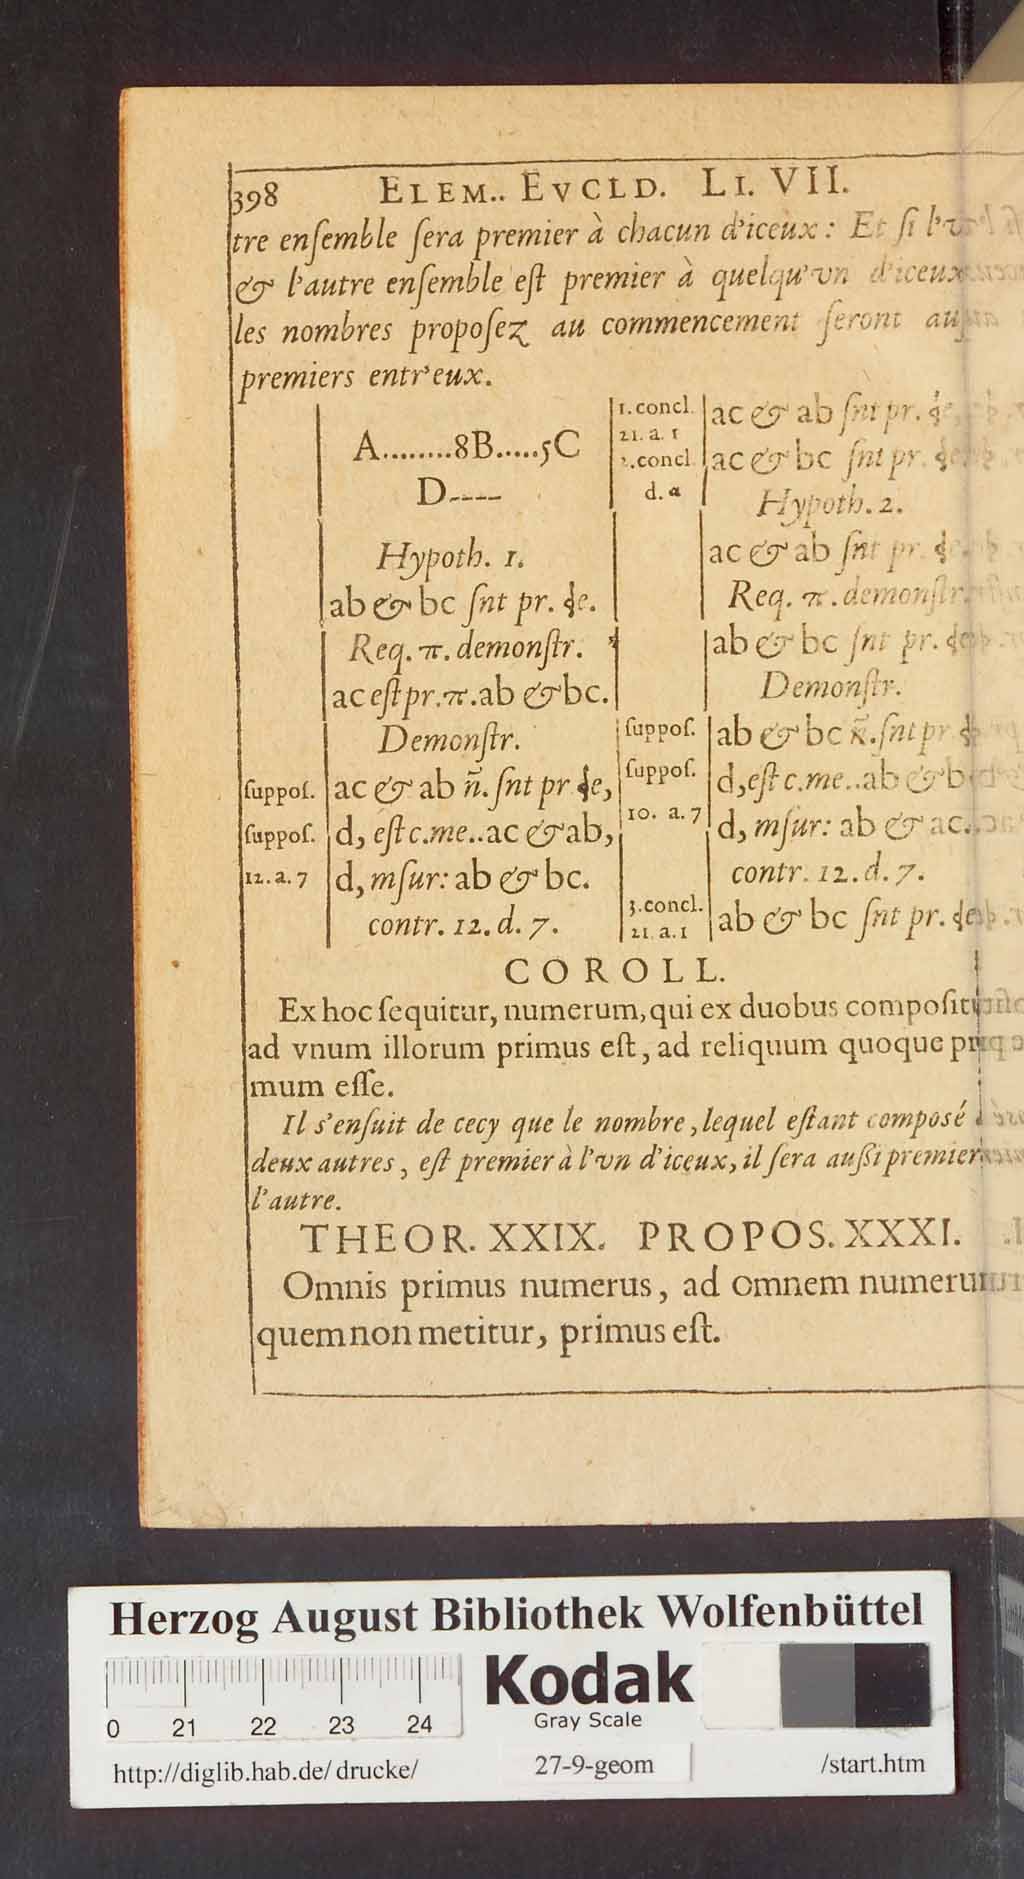 398 ELEM.. EVCLD. LI. VII.
tre enſemble ſera premier à chacun d'iceux: Et ſi l'vn
& l'autre enſemble eſt premier à quelqu'vn d'iceux
les nombres propoſez au commencement ſeront
premiers entr'eux.
A........8B.....5C
D----
Hypoth. 1.
ab & bc ſnt pr. ɖe.
Req. π. demonſtr.
ac eſt pr. π. ab & bc.
Demonſtr.
ſuppoſ. ac & ab ñ. ſnt pr ɖe,
ſuppoſ. d, eſt c. me.. ac & ab,
12. a. 7 d, mſur: ab & bc.
contr. 12. d. 7.
1. concl. ac & ab ſnt pr. ɖe,
21. a. 1
2. concl. ac & bc ſnt pr. ɖe.
d. α
Hypoth. 2.
ac & ab ſnt pr. ɖe.
Req. π. demonſtr.
ab & bc ſnt pr. ɖe
Demonſtr.
ſuppoſ. ab & bc ñ. ſnt pr ɖe
ſuppoſ. d, eſt c. me.. ab & b
10. a. 7 d, mſur: ab & ac.
contr. 12. d. 7.
3. concl. ab & bc ſnt pr. ɖe
21. a. 1
COROLL.
Ex hoc ſequitur, numerum, qui ex duobus compoſit
ad vnum illorum primus eſt, ad reliquum quoque pri
mum eſſe.
Il s'enſuit de cecy que le nombre, lequel eſtant composé
deux autres, eſt premier à l'vn d'iceux, il ſera außi premier
l'autre.
THEOR. XXIX. PROPOS. XXXI.
Omnis primus numerus, ad omnem numerum
quem non metitur, primus eſt.
Herzog August Bibliothek Wolfenbüttel
Kodak
Gray Scale
0 21 22 23 24
http://diglib.hab.de/drucke/ 27-9-geom /start.htm